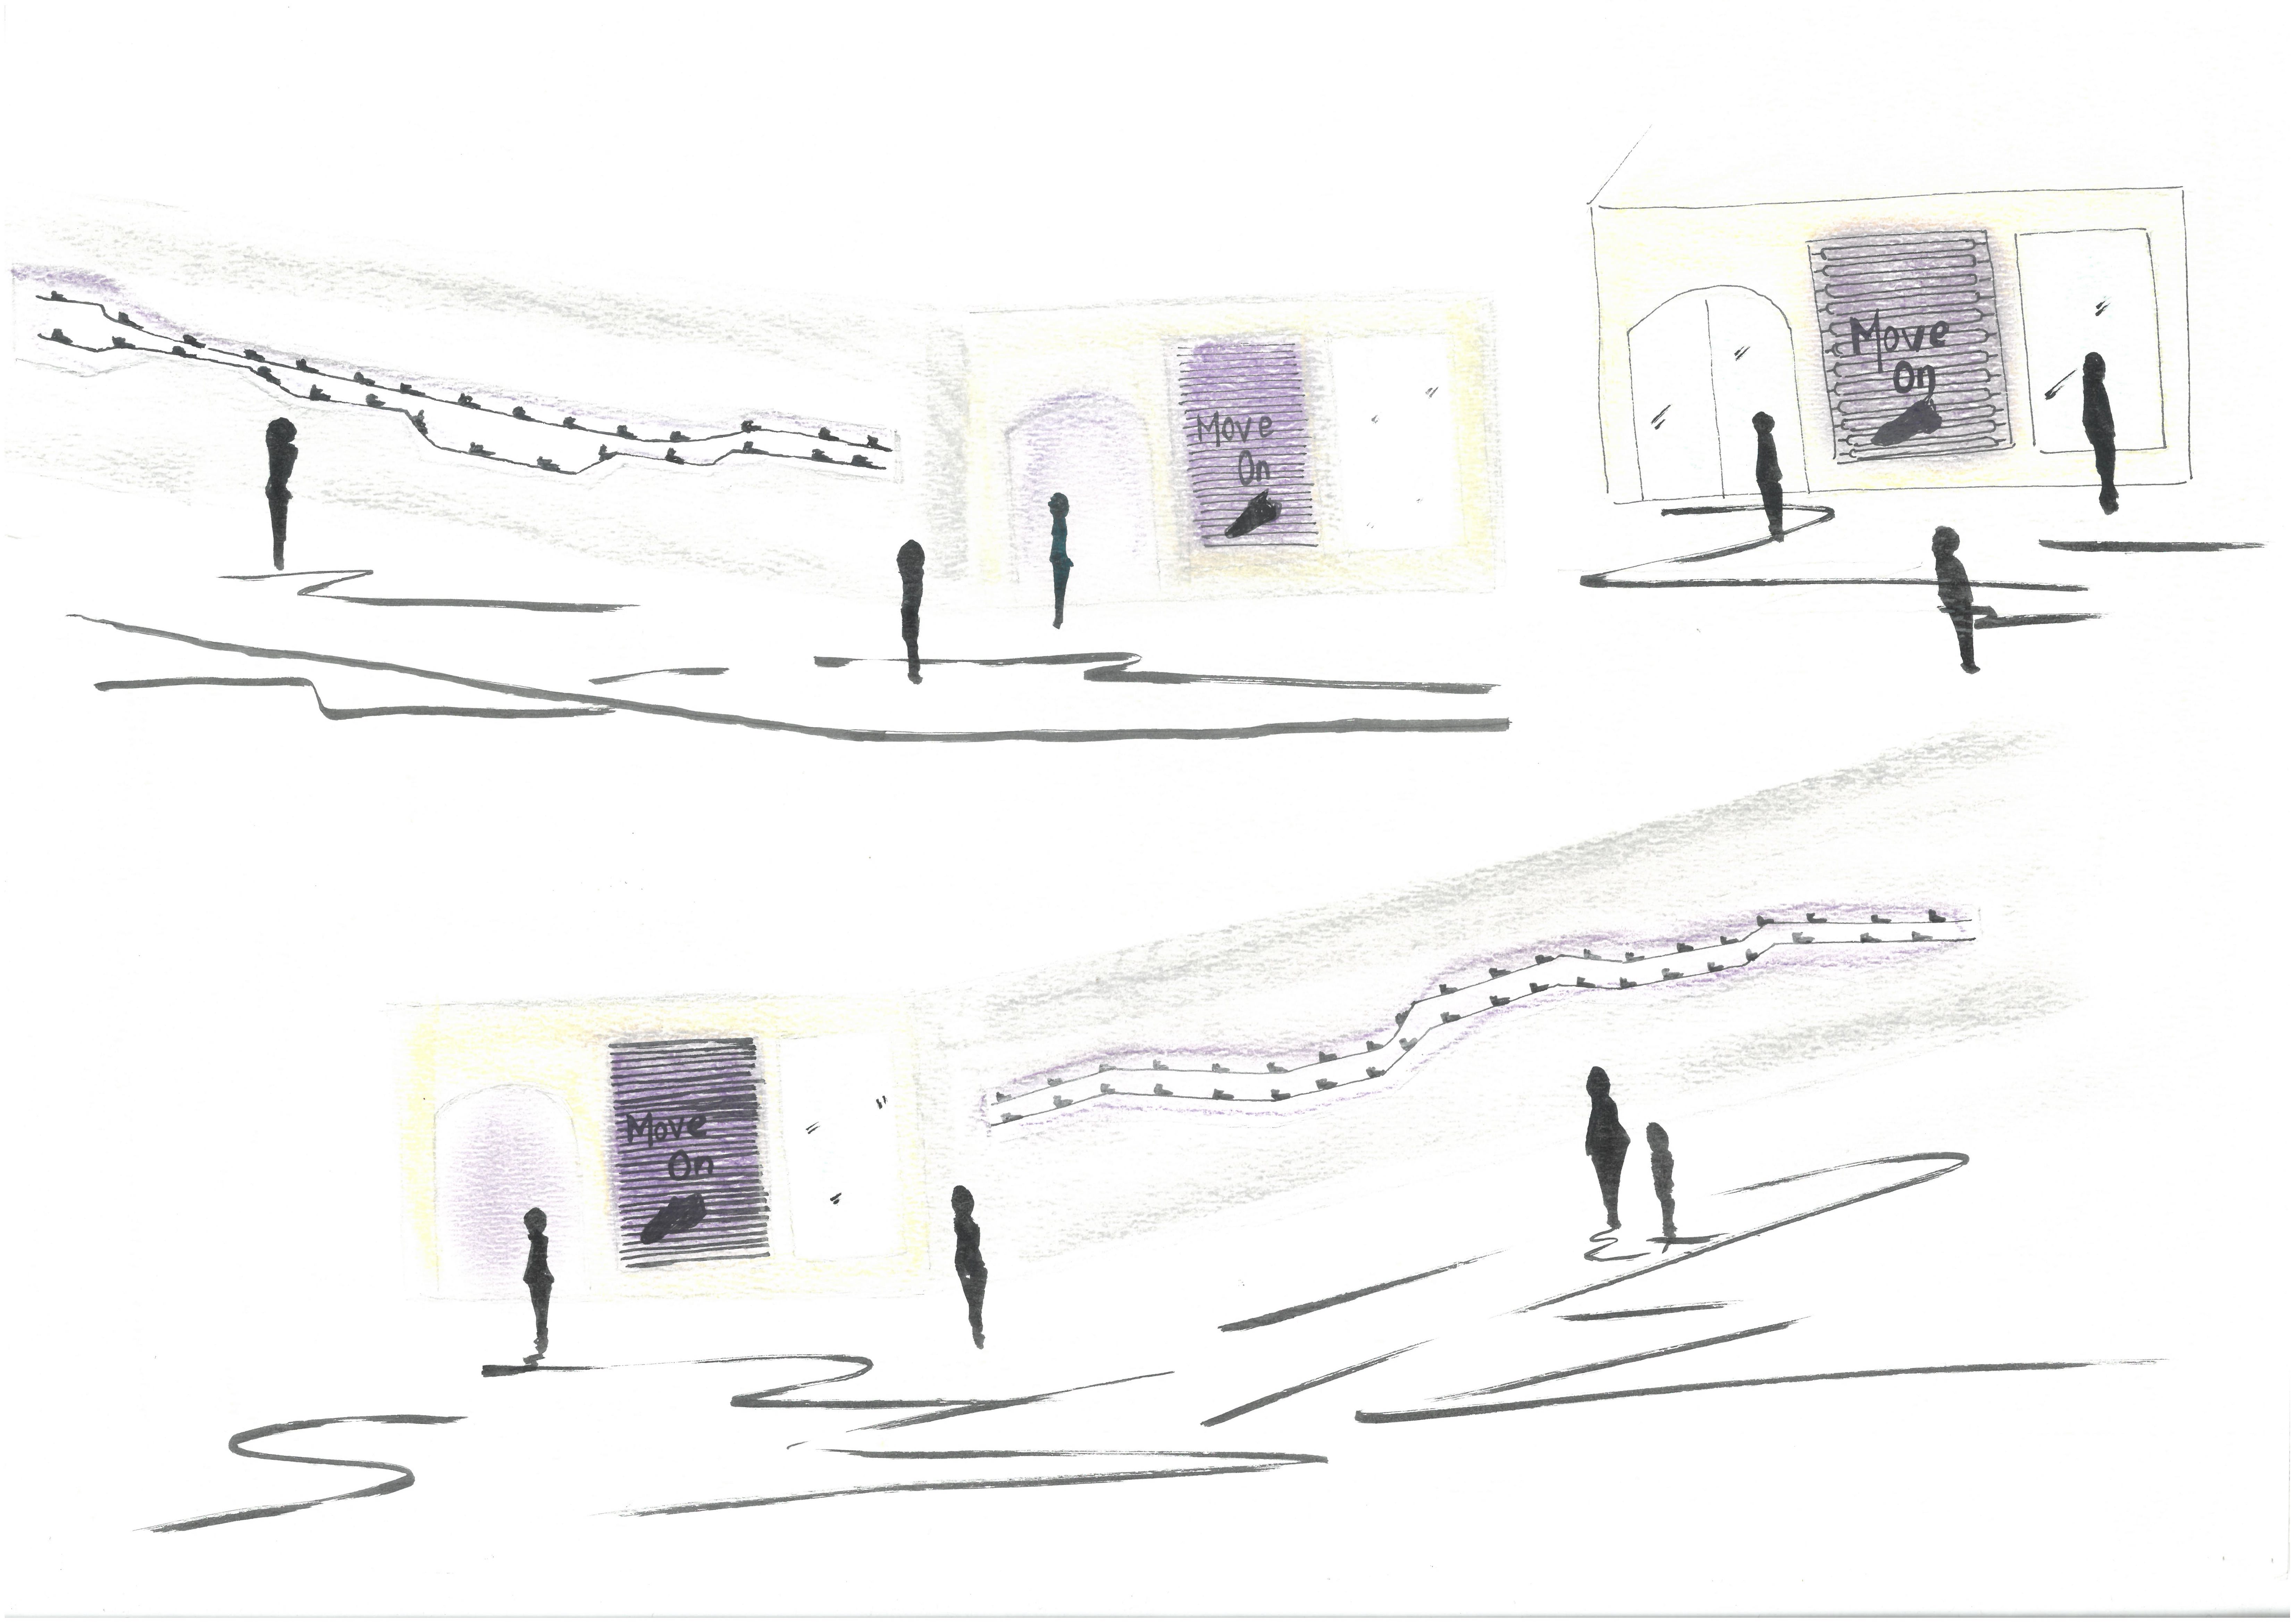 Move
On
Move
On
Move
On